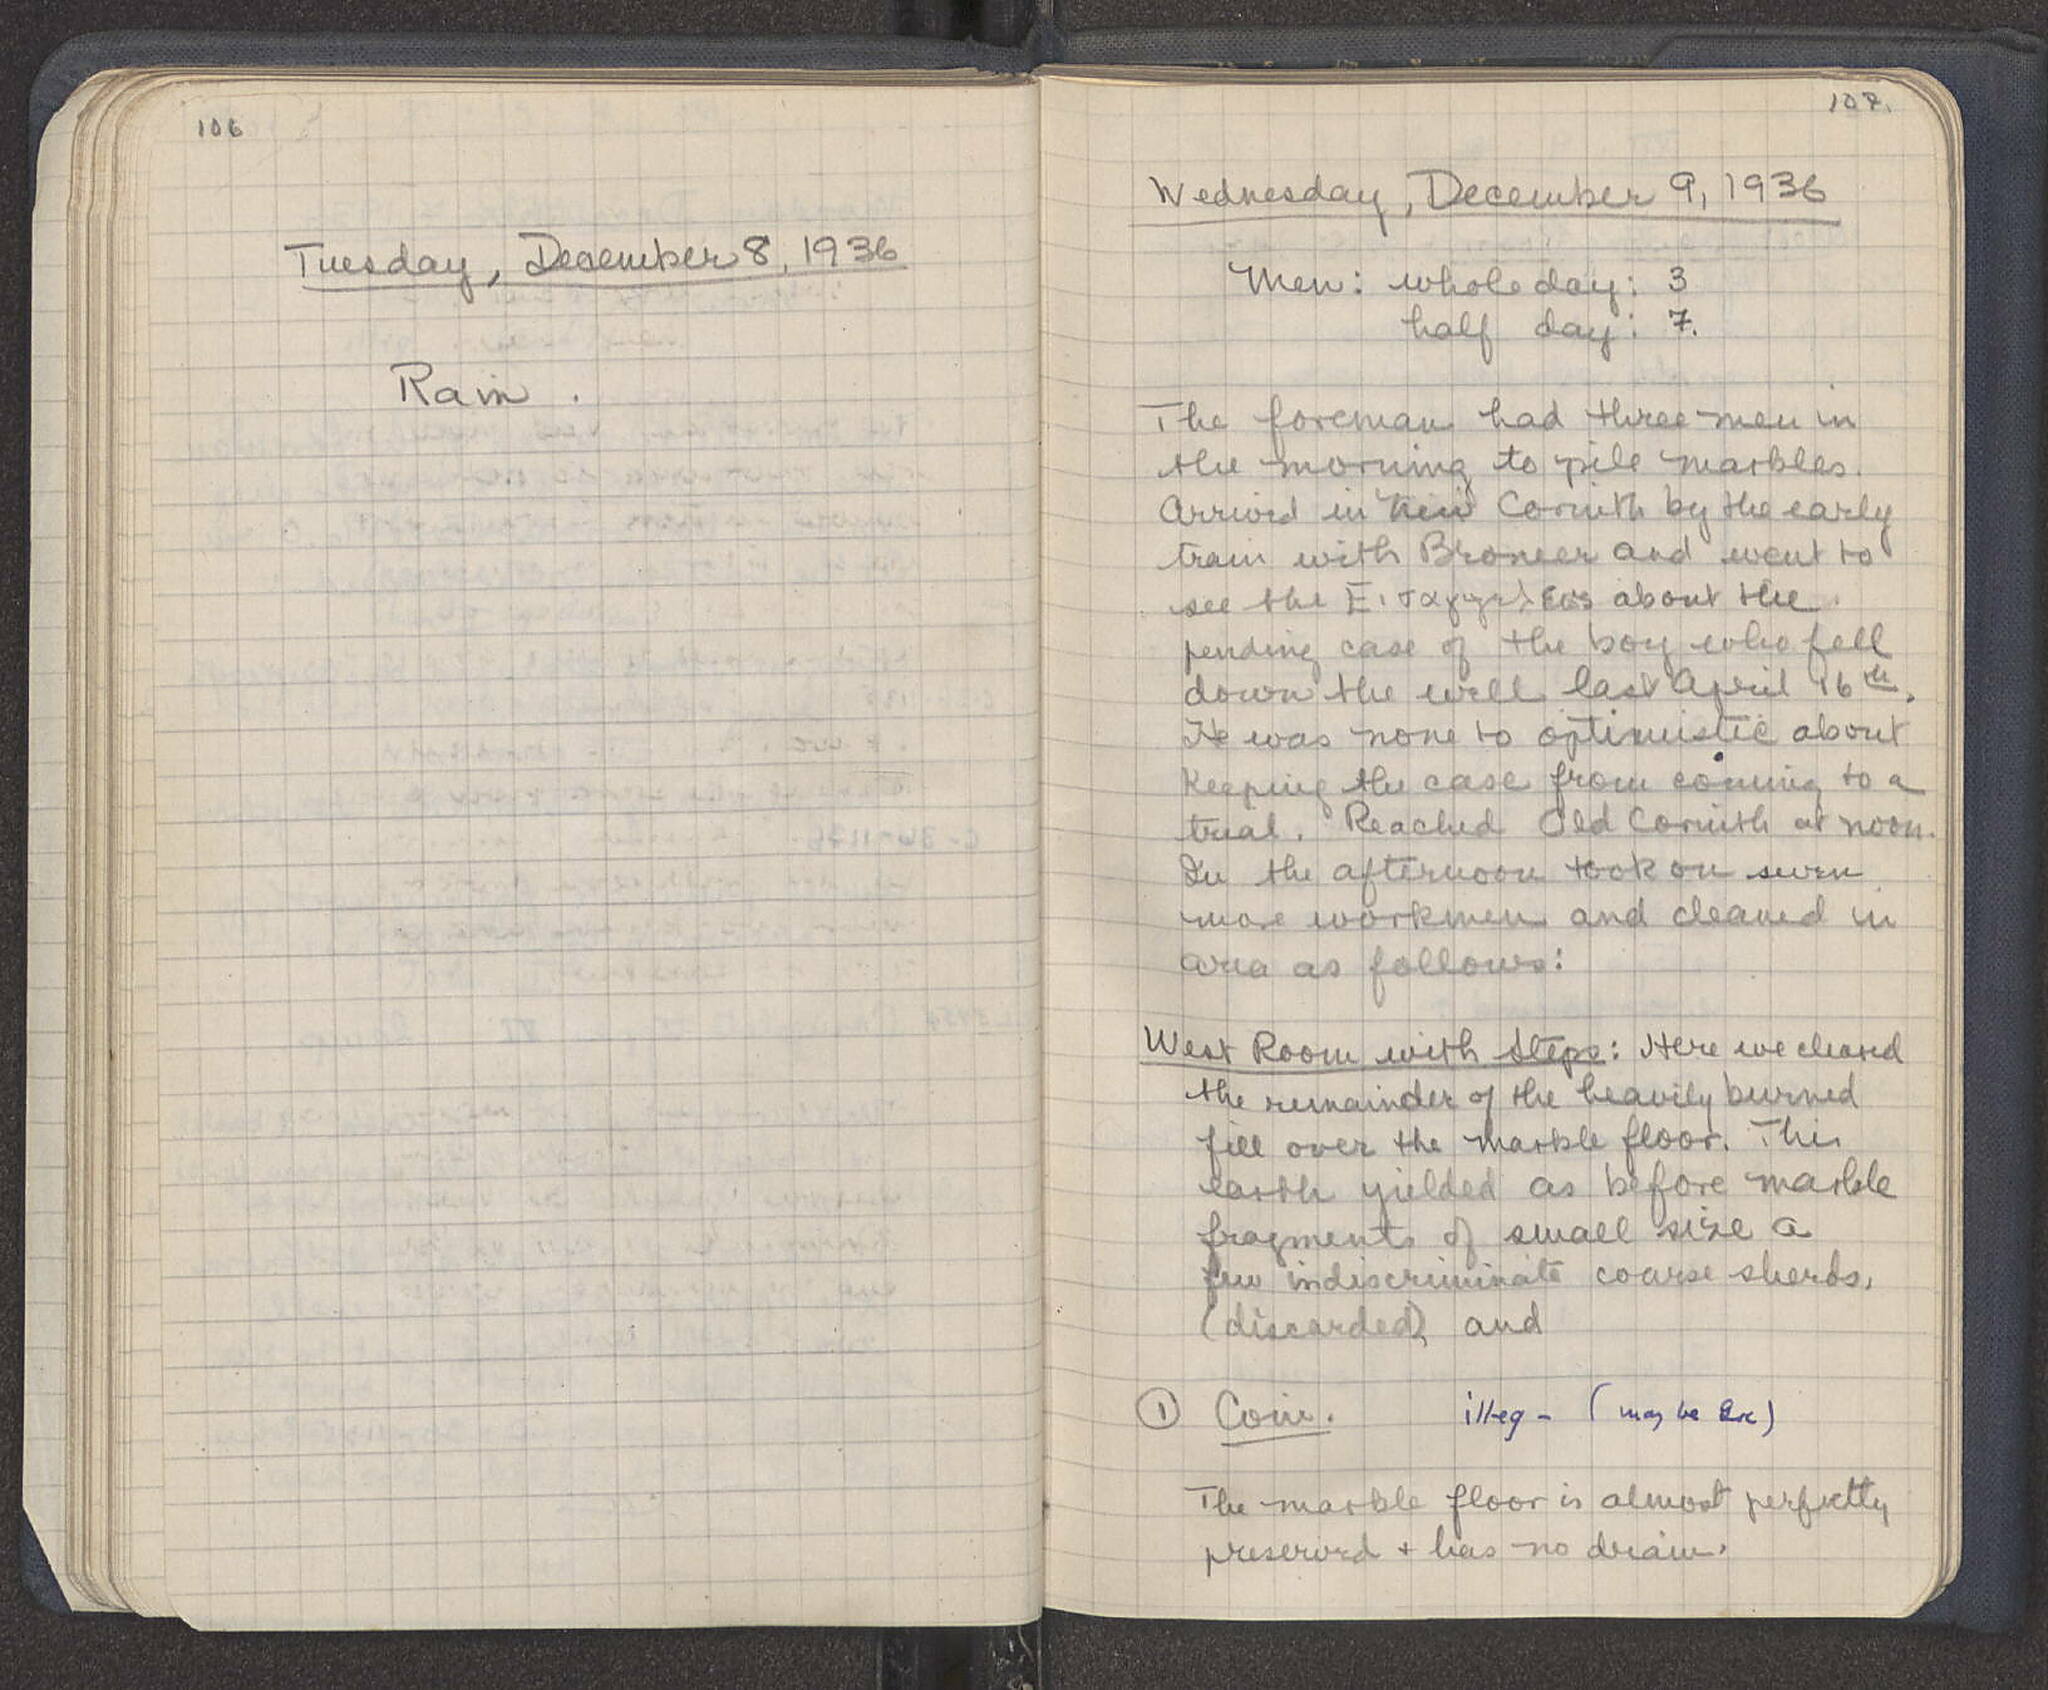 106
Tuesday, December 8, 1936
Rain.
107.
Wednesday, December 9, 1936
Men: whole day: 3
half day: 7.
The foreman had three men in
the morning to pile marbles.
Arrived in New Corinth by the early
train with Broneer and went to
see the Εἰσαγγελεύς about the
pending case of the boy who fell
down the well last April 16th.
He was none to optimistic about
keeping the case from coming to a
trial. Reached Old Corinth at noon.
In the afternoon took on seven
more workmen and cleaned in
area as follows:
West Room with Steps: Here we cleared
the remainder of the heavily burned
fill over the marble floor. This
earth yielded as before marble
fragments of small size a
few indiscriminate coarse sherds,
(discarded), and
① Coin. illeg - (may be
The marble floor is almost perfectly
preserved + has no drain.